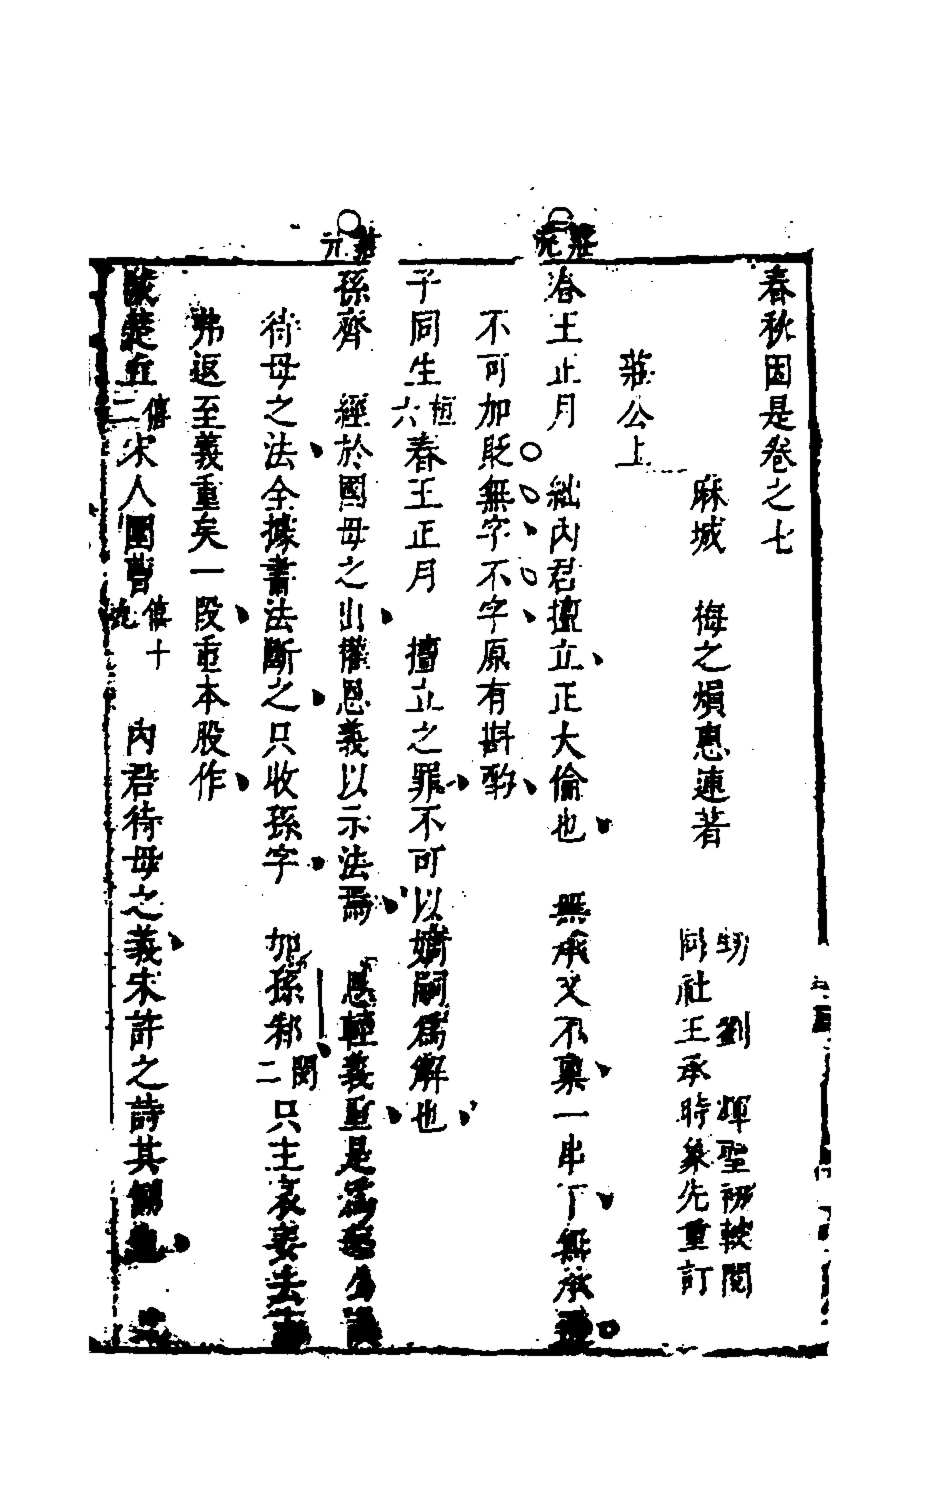 春秋因是卷之七
麻城 梅之熉惠連著
劉 煇聖初較閱
同社王承時乘先重訂
莊公上
莊元
春王正月 絀內君擅立正大倫也 無承又不稟一串丁無承
不可加貶無字不字原有斟酌
子同生桓六春王正月 擅立之罪不可以嫡嗣為解也
莊元
孫齊 經於國母之出權恩義以示法焉 恩輕義重是為至公
待母之法全據書法斷之只收孫字 加孫邾閔二只主哀姜去
弗返至義重矣一段重本股作
城楚丘僖二宋人圍曹僖十九 內君待母之義宋許之詩其